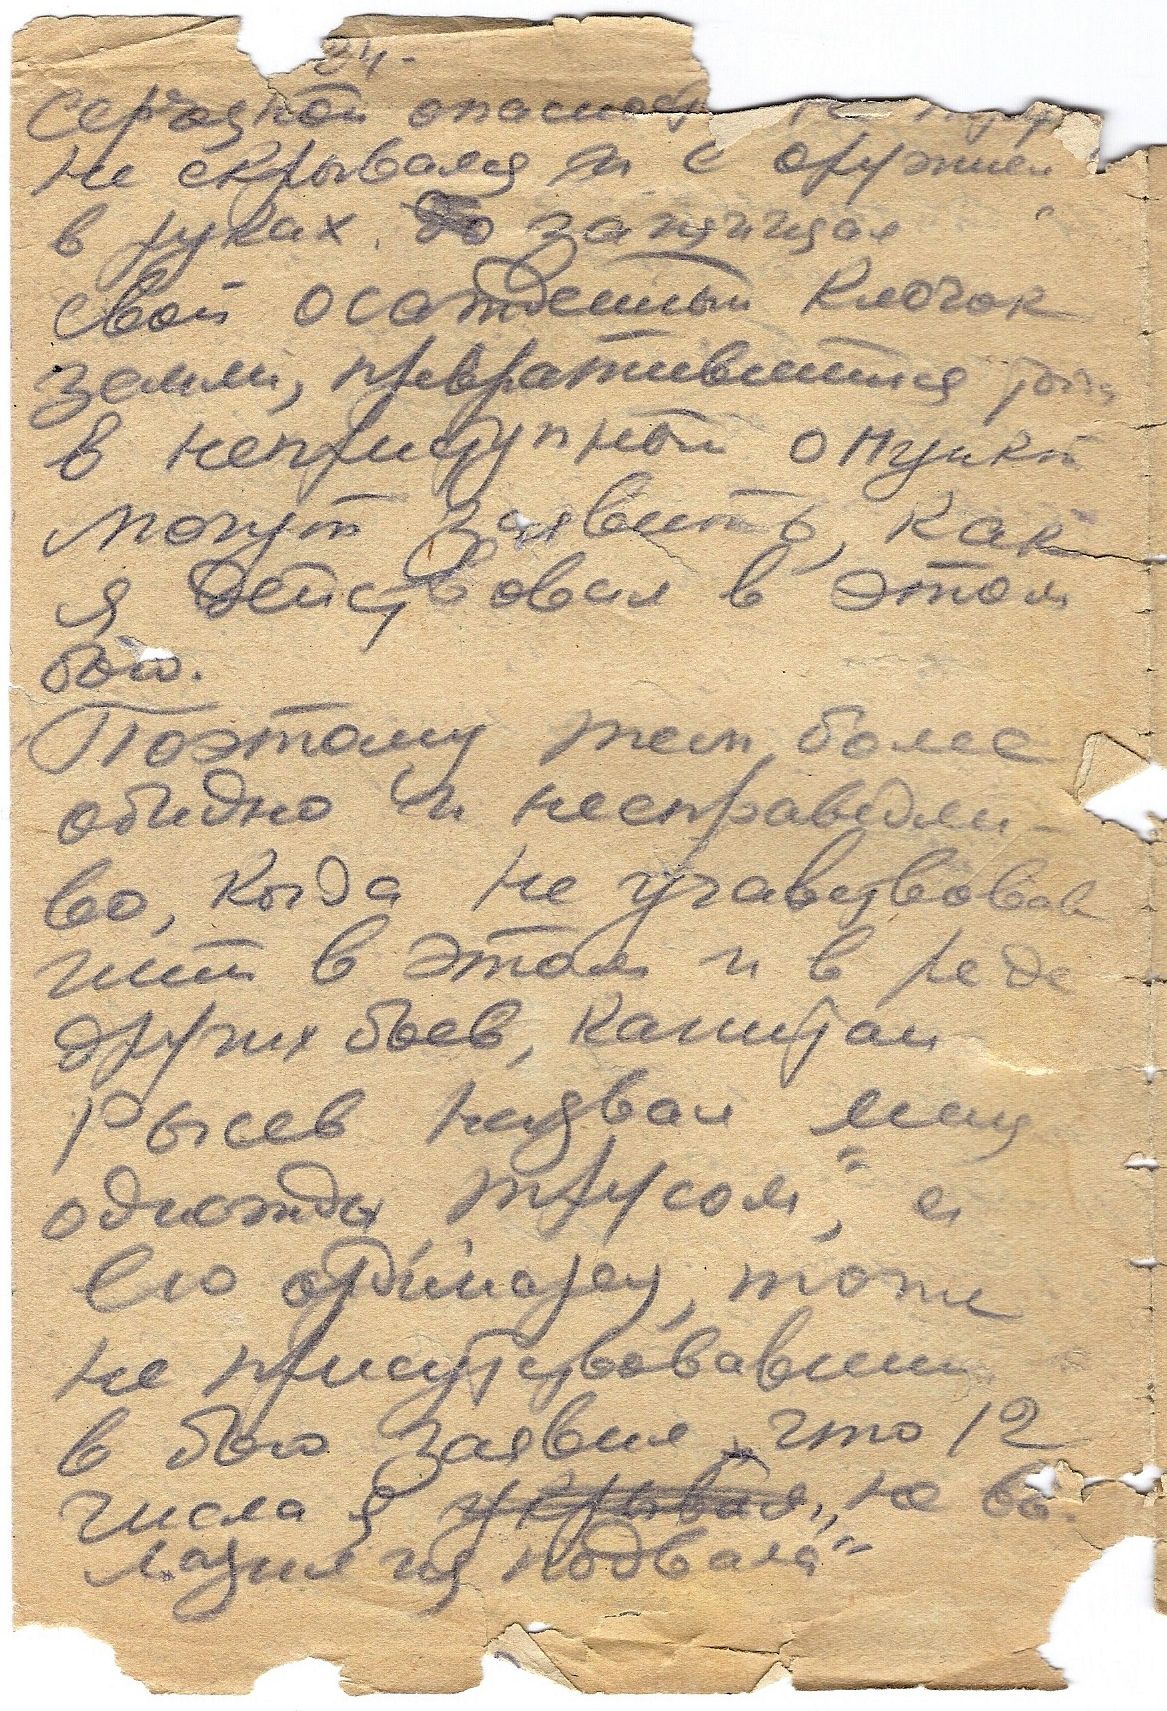 84.
Серьезной опасности
не скрывался и с оружием
в руках. защищал
свой осажденный клочок
земли, превратившийся
в неприступный
могут заявить, как
я действовал в этом
бою.
Поэтому тем более
обидно и несправедли-
во, когда не участвовав
ший в этом и в ряде
других боев, капитан
Рысев назвал меня
однажды „трусом", а
его ординарец, тоже
не присутствовавший
в бою заявил, что 12
числа я укрывал „не вы-
лазил из подвала"